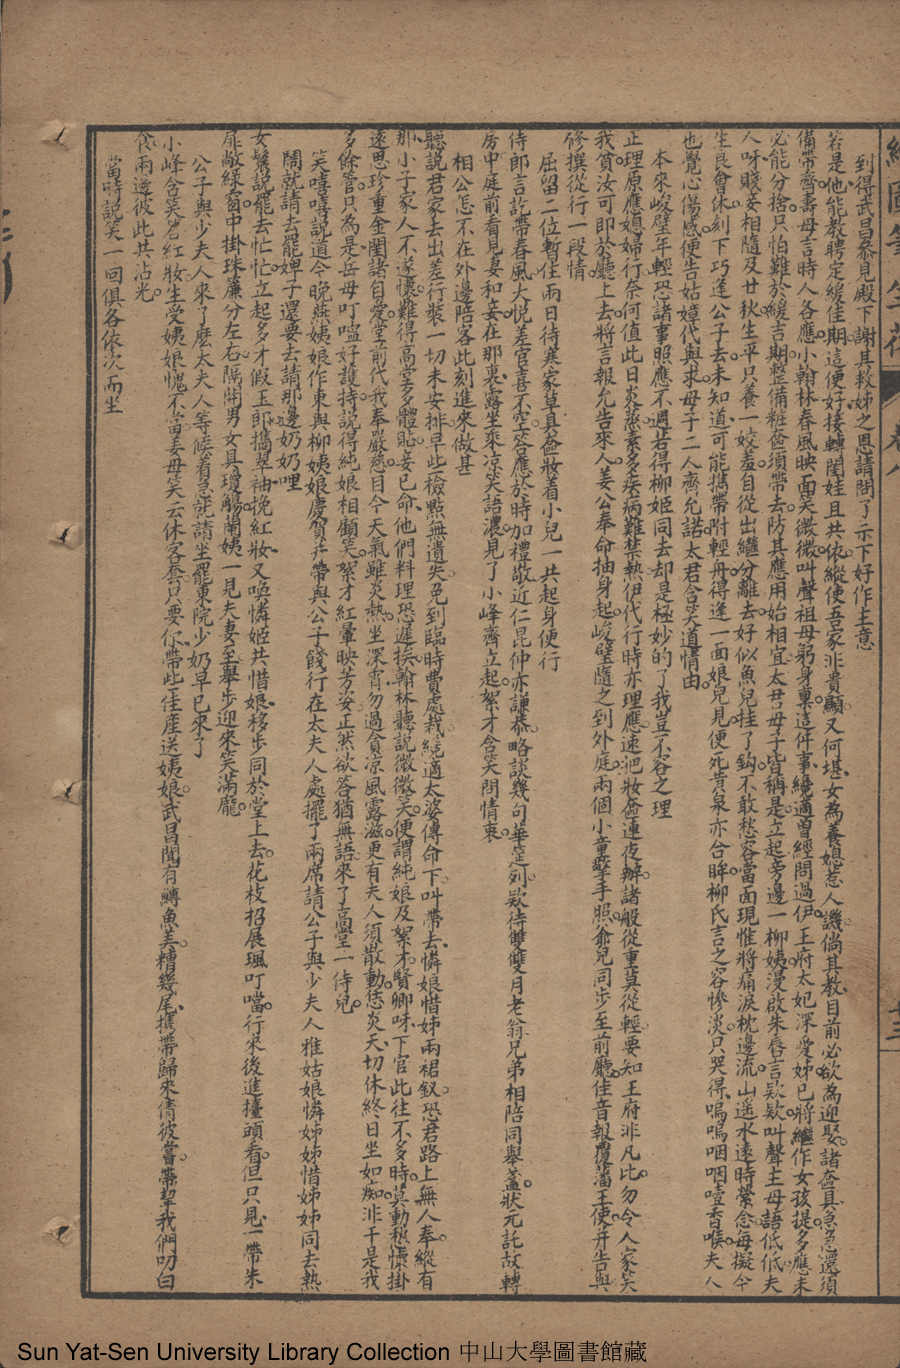 到得武昌叅見殿下謝其救姊之恩請問了示下好作主意
若是他能教聘定緩佳期這便好接轉閨娃且共依縱使吾家非貴顯又何堪女為養媳惹人譏倘其教目前必欲為迎娶諸奩具急急還須
備帶齊壽母言時人各應小翰林春風映面笑微微叫聲祖母躬身稟這件事纔適曾經問過伊王府太妃深愛姊已將繼作女孩提多應未
必能分捨只怕難於緩吉期整備粧奩須帶去防其應用始相宜太君母子皆稱是立起旁邊一柳姨漫啟朱唇言欵欵叫聲主母語低低夫
人呀賤妾相隨及廿秋生平只養一姣羞自從出繼分離去好似魚兒挂了鈎不敢愁容當面現惟將痛淚枕邊流山遥水遠時縈念每擬今
生良會休刻下巧逢公子去未知道可能攜帶附輕舟得逢一面娘兒見便死黃泉亦合眸柳氏言之容慘淡只哭得嗚嗚咽咽噎香喉夫人
也覺心傷感便告姑嫜代與求母子二人齊允諾太君含笑道情由
本來峻壁年輕恐諸事照應不週若得柳姬同去却是極妙的了我豈不容之理
正理原應媳婦行奈何值此日炎蒸素多疾病難禁熱伊代行時亦理應速把妝奩連夜辦諸般從重莫從輕要知王府非凡比勿令人家笑
我貧汝可即於廳上去將言報允告來人姜公奉命抽身起峻壁隨之到外庭兩個小童擎手照爺兒同步至前廳佳音報覆藩王使并告與
修撰從行一段情
屈留二位暫住兩日待寒家草具奩妝着小兒一共起身便行
侍郎言訖帶春風大悅差官喜不窮荅應於時加禮敬近仁昆仲亦謙恭略談幾句華筵列欵待雙雙月老翁兄弟相陪同舉盞狀元託故轉
房中庭前看見妻和妾在那裏露坐乘凉笑語濃見了小峰齊立起絮才含笑問情衷
相公怎不在外邊陪客此刻進來做甚
聽說君家去出差行裝一切未安排早些檢點無遺失免到臨時費處裁纔適太婆傳命下叫帶去憐娘惜姊兩裙釵恐君路上無人奉縱有
那小子家人不遂懷難得高堂多體貼妾已命他們料理恐遲挨翰林聽說微微笑便謂純娘及絮才賢卿呀下官此往不多時莫動愁懷掛
遠思珍重金閨諸自愛堂前代我奉嚴慈目今天氣雖炎熱坐深宵勿過貪凉風露滋更有夫人須散動恁炎天切休終日坐如痴非干是我
多餘管只為是岳母叮嚀好護持說得純娘相顧笑絮才紅暈映芳姿正然欲答猶無語來了高堂一侍兒
笑嘻嘻說道今晚燕姨娘作東與柳姨娘慶賀并帶與公子餞行在太夫人處擺了兩席請公子與少夫人雅姑娘憐姊姊惜姊姊同去熱
鬧就請去罷婢子還要去請那邊奶奶哩
女鬟說罷去忙忙立起多才假玉郎攜翠袖挽紅妝又喚憐姬共惜娘移步同於堂上去花枝招展珮叮噹行來後進擡頭看但只見一帶朱
扉敞綠窗中掛珠簾分左右隔開男女具瓊觴蘭姨一見夫妻至舉步迎來笑滿龐
公子與少夫人來了麼太夫人等候着急哉請坐罷東院少奶早已來了
小峰含笑看紅妝生受姨娘愧不當姜母笑云休客套只要你帶此佳產送姨娘武昌聞有鱘魚美糟幾尾攜帶歸來倩彼嘗帶挈我們叨口
食兩邊彼此共沾光
當時說笑一回俱各依次而坐
Sun Yat-Sen University Library Collection 中山大學圖書館藏